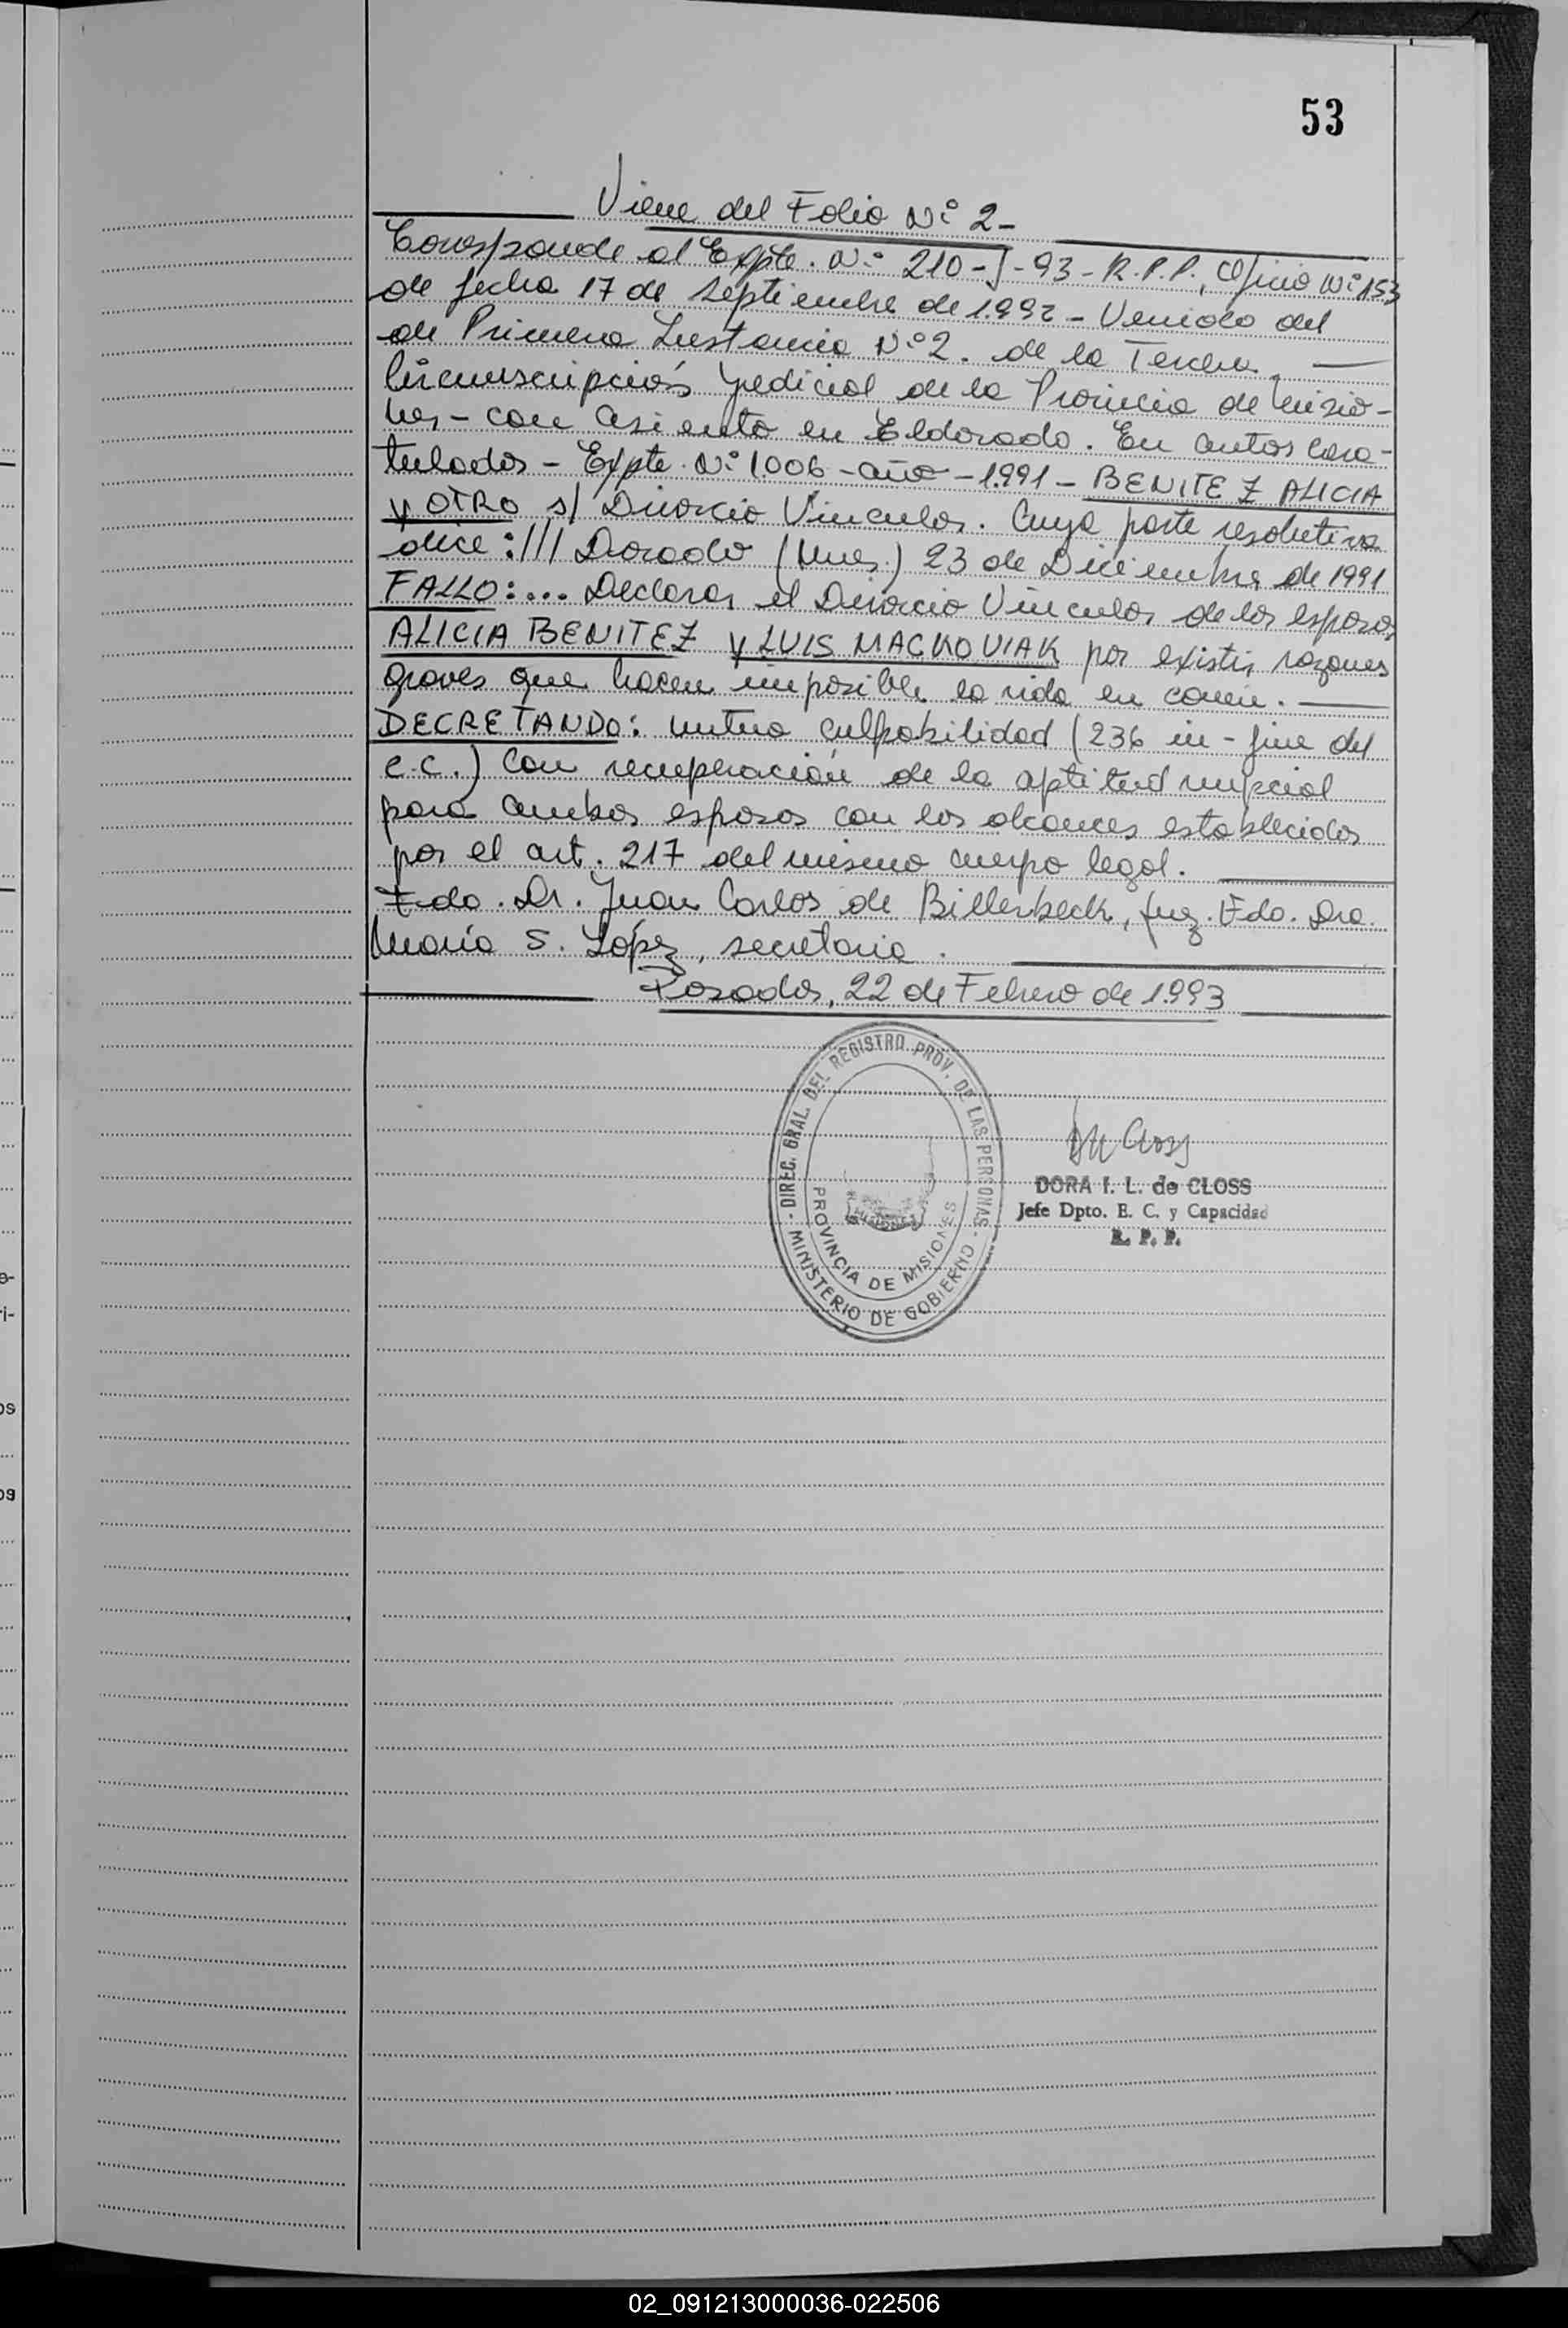 53
Viene del Folio Nº 2-
Corresponde al Expte. Nº 210-J-93-R.P.P., Oficio Nº 153
de fecha 17 de septiembre de 1.992 - Venido del
de Primera Instancia Nº 2. de la Tercera
Circunscripción Judicial de la Provincia de Misio-
nes - con asiento en Eldorado. En autos cara-
tulados - Expte. Nº 1.006 - año - 1.991 - BENITEZ ALICIA
y OTRO s/ Divorcio Vincular. Cuya parte resolutiva
dice: /// Dorado (Mnes.) 23 de Diciembre de 1991
FALLO:... Declarar el Divorcio Vincular de los esposos
ALICIA BENITEZ y LUIS MACKOVIAK por existir razones
graves que hacen imposible la vida en común.
DECRETANDO: mutua culpabilidad (236 in-fine del
c.c.) Con recuperación de la aptitud nupcial
para ambos esposos con los alcances establecidos
por el art. 217 del mismo cuerpo legal.
Fdo. Dr. Juan Carlos de Billerbeck, Juez. Fdo. Dra.
María S. López, secretaria.
Posadas, 22 de Febrero de 1.993
- DIREC. GRAL. DEL REGISTRO PROV. DE LAS PERSONAS -
MINISTERIO DE GOBIERNO
PROVINCIA DE MISIONES
MISIONES
DORA I. L. de CLOSS
Jefe Dpto. E. C. y Capacidad
R. P. P.
e-
ri-
os
os
02_091213000036-022506